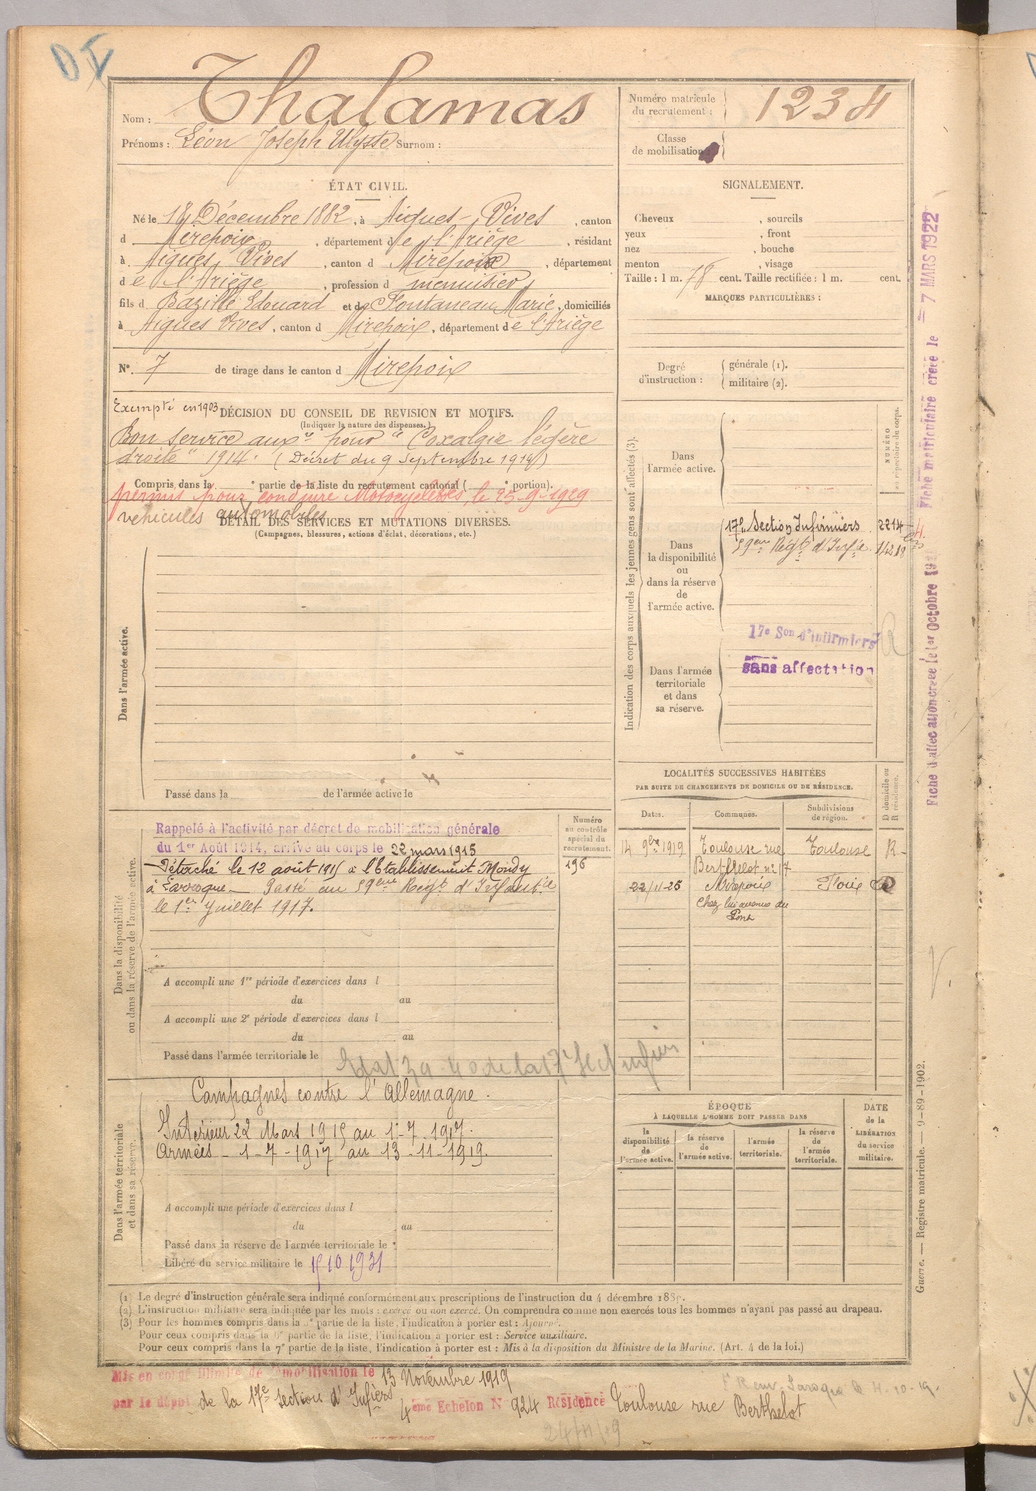 Nom : Thalamas
Prénoms : Léon Joseph Ulysse Surnom :
Numéro matricule du recrutement : 1234
Classe de mobilisation
ÉTAT CIVIL.
Né le 18 Décembre 1882, à Aigues-Vives, canton
d Mirepoix, département de l'Ariège, résidant
à Aigues Vives, canton d Mirepoix, département
de l'Ariège, profession d menuisier
fils d Bazille Edouard et de Fontaneau Marie, domiciliés
à Aigues Vives, canton d Mirepoix, département de l'Ariège
N° 7 de tirage dans le canton d Mirepoix
SIGNALEMENT.
Cheveux , sourcils
yeux , front
nez , bouche
menton , visage
Taille : 1 m. 78 cent. Taille rectifiée : 1 m. cent.
MARQUES PARTICULIÈRES :
Degré d'instruction : générale (1).
militaire (2).
Exempté en 1903 DÉCISION DU CONSEIL DE REVISION ET MOTIFS.
(Indiquer la nature des dispenses.)
Bon service auxre pour "Coxalgie légère
droite" 1914. (Décret du 9 Septembre 1914)
Compris dans la e partie de la liste du recrutement cantonal ( e portion).
permis pour conduire Motocyclettes, le 25-9-1929
véhicules automobiles
DÉTAIL DES SERVICES ET MUTATIONS DIVERSES.
(Campagnes, blessures, actions d'éclat, décorations, etc.)
Dans l'armée active.
Passé dans la de l'armée active le
Indication des corps auxquels les jeunes gens sont affectés (3).
Dans l'armée active.
Dans la disponibilité ou dans la réserve de l'armée active.
17e Section Infirmiers 2214
59eme Régt d'Infie
17e Son d'infirmiers
Dans l'armée territoriale et dans sa réserve.
sans affectation
Fiche d'affectation créée le 1er Octobre
Fiche matriculaire créée le - 7 MARS 1922
LOCALITÉS SUCCESSIVES HABITÉES
PAR SUITE DE CHANGEMENTS DE DOMICILE OU DE RÉSIDENCE.
Dates. Communes. Subdivisions de région. D domicile ou R résidence.
14 9bre 1919 Toulouse rue Berthelot n° 17 Toulouse R
22/11-26 Mirepoix Foix D
Chez lui avenue du Pont
Dans la disponibilité ou dans la réserve de l'armée active.
Numéro au contrôle spécial du recrutement.
196
Rappelé à l'activité par décret de mobilisation générale
du 1er Août 1914, arrivé au corps le 22 mars 1915
Détaché le 12 août 1915 à l'Etablissement Mondy
à Lavroque Passé au 59eme Régt d'Infanterie
le 1er Juillet 1917.
A accompli une 1re période d'exercices dans l
du au
A accompli une 2e période d'exercices dans l
du au
Passé dans l'armée territoriale le
Dans l'armée territoriale et dans sa réserve.
Campagnes contre l'Allemagne.
Intérieur 22 Mars 1915 au 1-7-1917.
Armées - 1-7-1917 au 13-11-1919.
A accompli une période d'exercices dans l
du au
Passé dans la réserve de l'armée territoriale le
Libéré du service militaire le 15 10 1931
ÉPOQUE
À LAQUELLE L'HOMME DOIT PASSER DANS
la disponibilité de l'armée active. la réserve de l'armée active. l'armée territoriale. la réserve de l'armée territoriale.
DATE de la LIBÉRATION du service militaire.
Guerre. — Registre matricule. — 9-89-1902.
(1) Le degré d'instruction générale sera indiqué conformément aux prescriptions de l'instruction du 4 décembre
(2) L'instruction militaire sera indiquée par les mots : exercé ou non exercé. On comprendra comme non exercés tous les hommes n'ayant pas passé au drapeau.
(3) Pour les hommes compris dans la partie de la liste, l'indication à porter est : Ajourné.
Pour ceux compris dans la partie de la liste, l'indication à porter est : Service auxiliaire.
Pour ceux compris dans la 7e partie de la liste, l'indication à porter est : Mis à la disposition du Ministre de la Marine. (Art. 4 de la loi.)
Mis en congé illimité de démobilisation le 13 Novembre 1919
par le dépôt de la 17e Section d'Infiers 4eme Echelon N° 924 Résidence Toulouse rue Berthelot